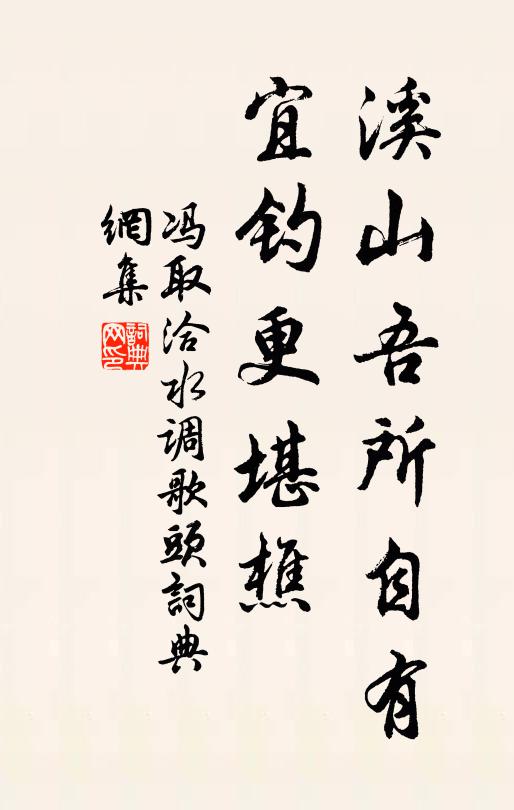 溪山吾所自有
宜钓更堪樵
冯取洽水调歌頭詞典
網集
詞典
网印